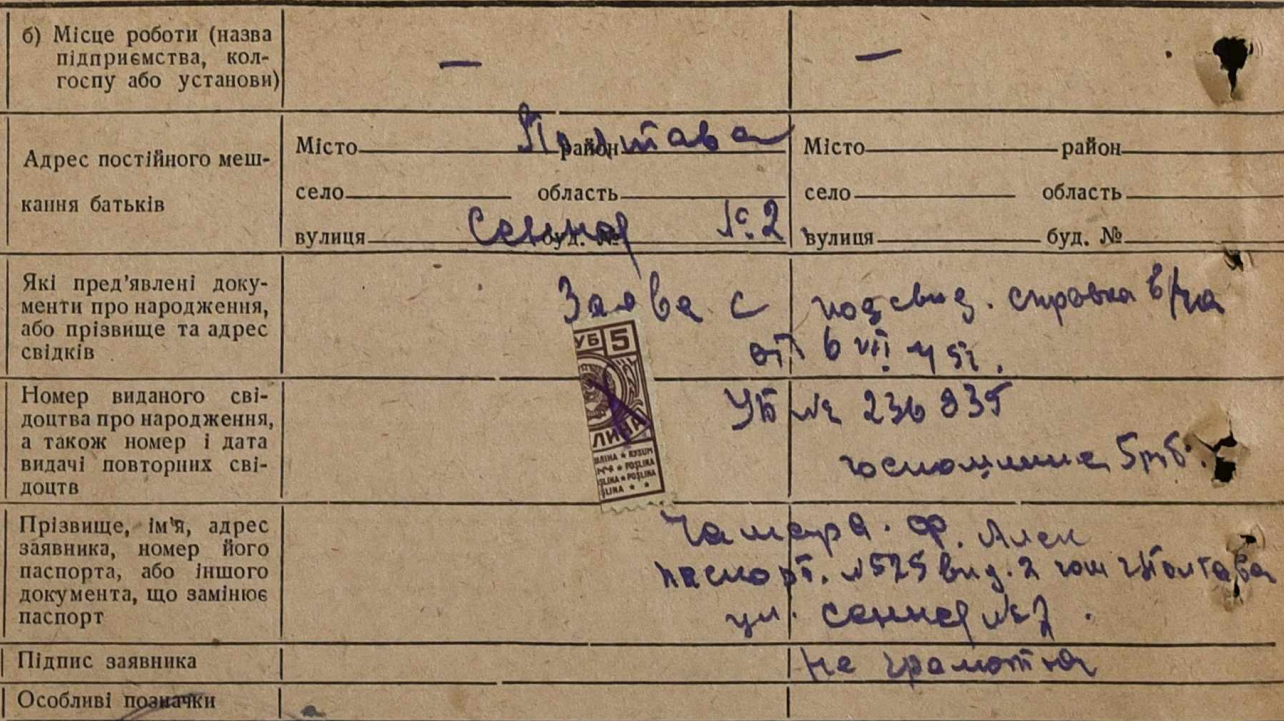 б) Місце роботи (назва
підприємства, кол-
госпу або установи)
— —
Адрес постійного меш-
кання батьків
Місто район Місто район
Полтава
село область село область
вулиця буд. № вулиця буд. №
Сенная №2
Які пред'явлені доку-
менти про народження,
або прізвище та адрес
свідків
Заява с справка в/ка
от 6 VII
УБ 5
ЛИНА
POSLINA
Номер виданого сві-
доцтва про народження,
а також номер і дата
видачі повторних сві-
доцтв
УБ № 236935
госпошлина 5 руб.
Прізвище, ім'я, адрес
заявника, номер його
паспорта, або іншого
документа, що замінює
паспорт
Ф. Алек
паспорт. №525 выд. 2 гом Полтава
ул. сенная №2
Підпис заявника
не грамотна
Особливі позначки